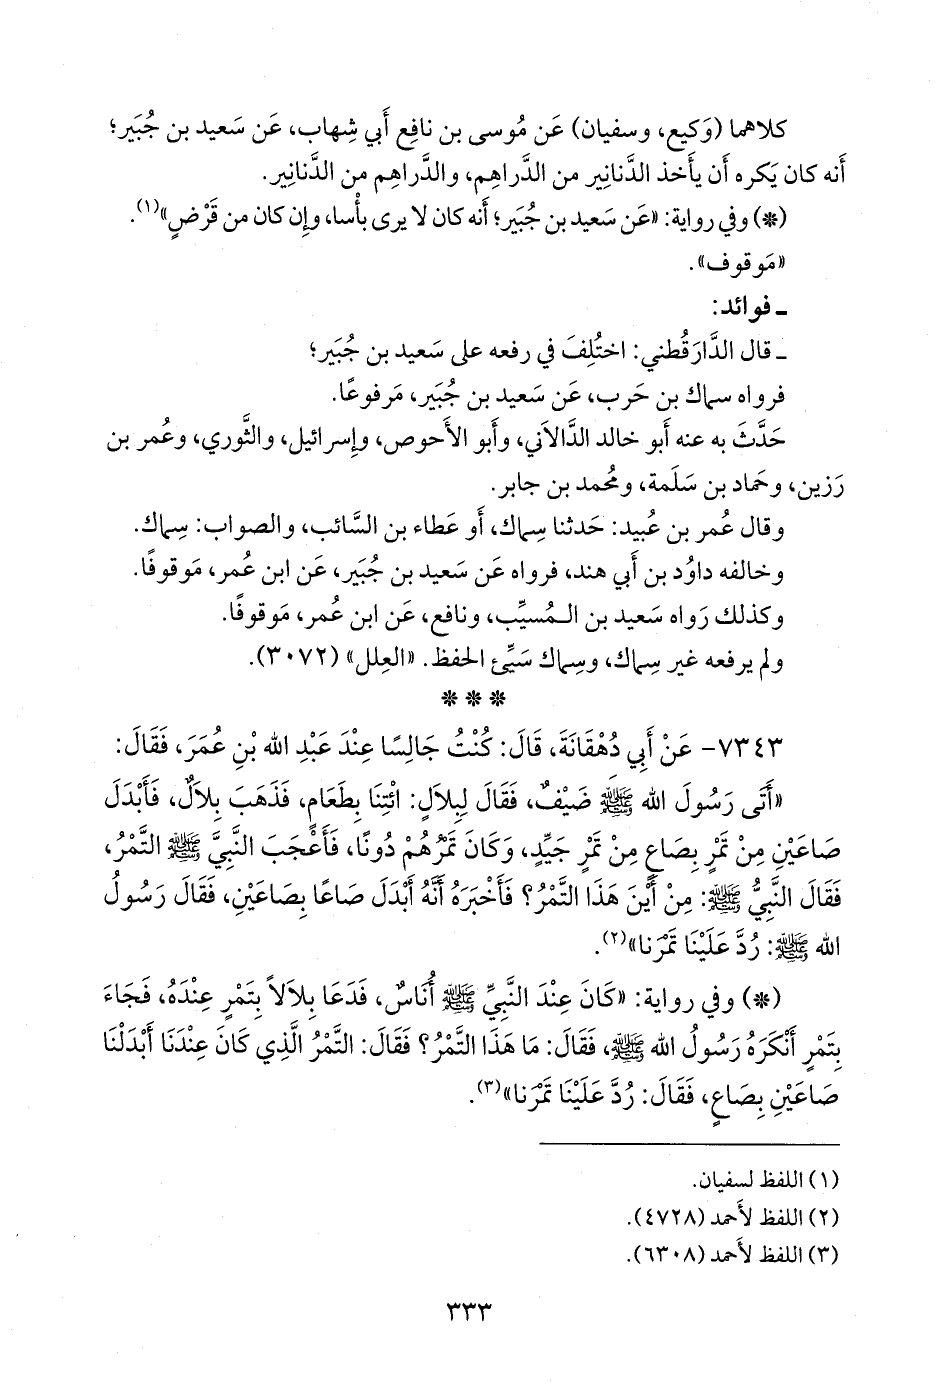 كلاهما (وَكيع، وسفيان) عَن مُوسى بن نافِع أَبي شِهاب، عَن سَعيد بن جُبَير؛
أَنه كان يَكره أَن يأَخذ الدَّنانِير من الدَّراهِم، والدَّراهِم من الدَّنانِير.
(*) وفي رواية: «عَن سَعيد بن جُبَير؛ أَنه كان لا يرى بأْسا، وإِن كان من قَرْضٍ»(١).
«مَوقوف».
ـ فوائد:
ـ قال الدَّارَقُطني: اختُلِفَ في رفعه على سَعيد بن جُبَير؛
فرواه سماك بن حَرب، عَن سَعيد بن جُبَير، مَرفوعًا.
حَدَّثَ به عنه أَبو خالد الدَّالاَني، وأَبو الأَحوص، وإِسرائيل، والثَّوري، وعُمر بن
رَزين، وحَماد بن سَلَمة، ومُحمد بن جابر.
وقال عُمر بن عُبيد: حَدثنا سِماك، أَو عَطاء بن السَّائب، والصواب: سِماك.
وخالفه داوُد بن أَبي هند، فرواه عَن سَعيد بن جُبَير، عَن ابن عُمر، مَوقوفًا.
وكذلك رَواه سَعيد بن المُسيِّب، ونافع، عَن ابن عُمر، مَوقوفًا.
ولم يرفعه غير سِماك، وسِماك سَيِّئ الحفظ. «العِلل» (٣٠٧٢).
* * *
٧٣٤٣- عَنْ أَبِي دُهْقَانَةَ، قَالَ: كُنْتُ جَالِسًا عِنْدَ عَبْدِ الله بْنِ عُمَرَ، فَقَالَ:
«أَتَى رَسُولَ الله ﷺ ضَيْفٌ، فَقَالَ لِبِلاَلٍ: ائْتِنَا بِطَعَامٍ، فَذَهَبَ بِلاَلٌ، فَأَبْدَلَ
صَاعَيْنِ مِنْ تَمْرٍ بِصَاعٍ مِنْ تَمْرٍ جَيِّدٍ، وَكَانَ تَمْرُهُمْ دُونًا، فَأَعْجَبَ النَّبِيَّ ﷺ التَّمْرُ،
فَقَالَ النَّبِيُّ ﷺ: مِنْ أَيْنَ هَذَا التَّمْرُ؟ فَأَخْبَرَهُ أَنَّهُ أَبْدَلَ صَاعًا بِصَاعَيْنِ، فَقَالَ رَسُولُ
الله ﷺ: رُدَّ عَلَيْنَا تَمْرَنا»(٢).
(*) وفي رواية: «كَانَ عِنْدَ النَّبِيِّ ﷺ أُنَاسٌ، فَدَعَا بِلاَلاً بِتَمْرٍ عِنْدَهُ، فَجَاءَ
بِتَمْرٍ أَنْكَرَهُ رَسُولُ الله ﷺ، فَقَالَ: مَا هَذَا التَّمْرُ؟ فَقَالَ: التَّمْرُ الَّذِي كَانَ عِنْدَنَا أَبْدَلْنَا
صَاعَيْنِ بِصَاعٍ، فَقَالَ: رُدَّ عَلَيْنَا تَمْرَنا»(٣).
(١) اللفظ لسفيان.
(٢) اللفظ لأَحمد (٤٧٢٨).
(٣) اللفظ لأَحمد (٦٣٠٨).
٣٣٣